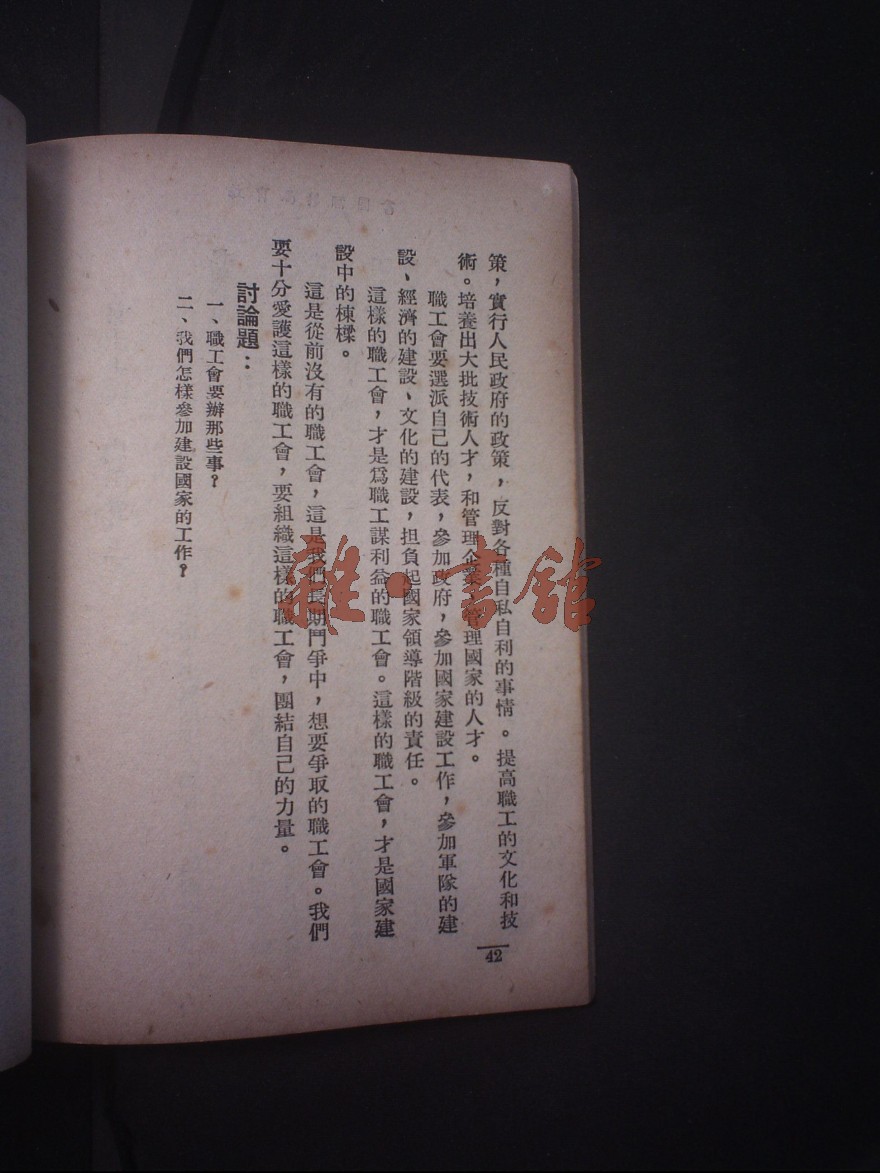 策，實行人民政府的政策，反對各種自私自利的事情。提高職工的文化和技
術。培養出大批技術人才，和管理企業、管理國家的人才。
職工會要選派自己的代表，參加政府，參加國家建設工作，參加軍隊的建
設、經濟的建設、文化的建設，担負起國家領導階級的責任。
這樣的職工會，才是爲職工謀利益的職工會。這樣的職工會，才是國家建
設中的棟樑。
這是從前沒有的職工會，這是我們長期鬥爭中，想要爭取的職工會。我們
要十分愛護這樣的職工會，要組織這樣的職工會，團結自己的力量。
討論題：
一、職工會要辦那些事？
二、我們怎樣參加建設國家的工作？
42
雜·書館